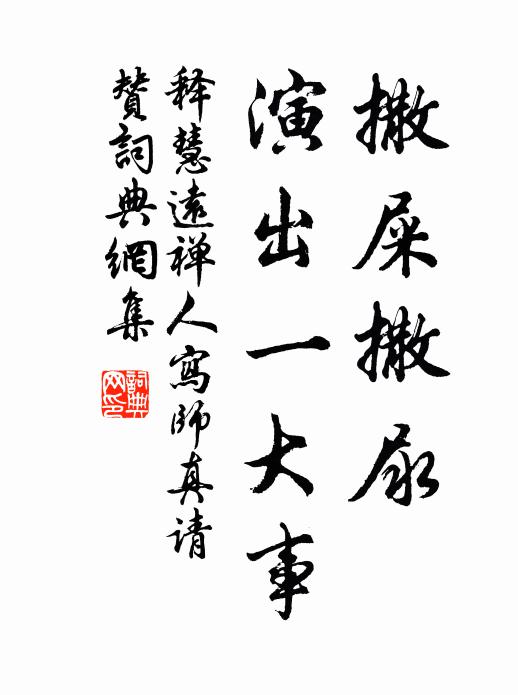 撒屎撒尿
演出一大事
释慧遠禅人寫師真请
赞詞典網集
詞典
网印